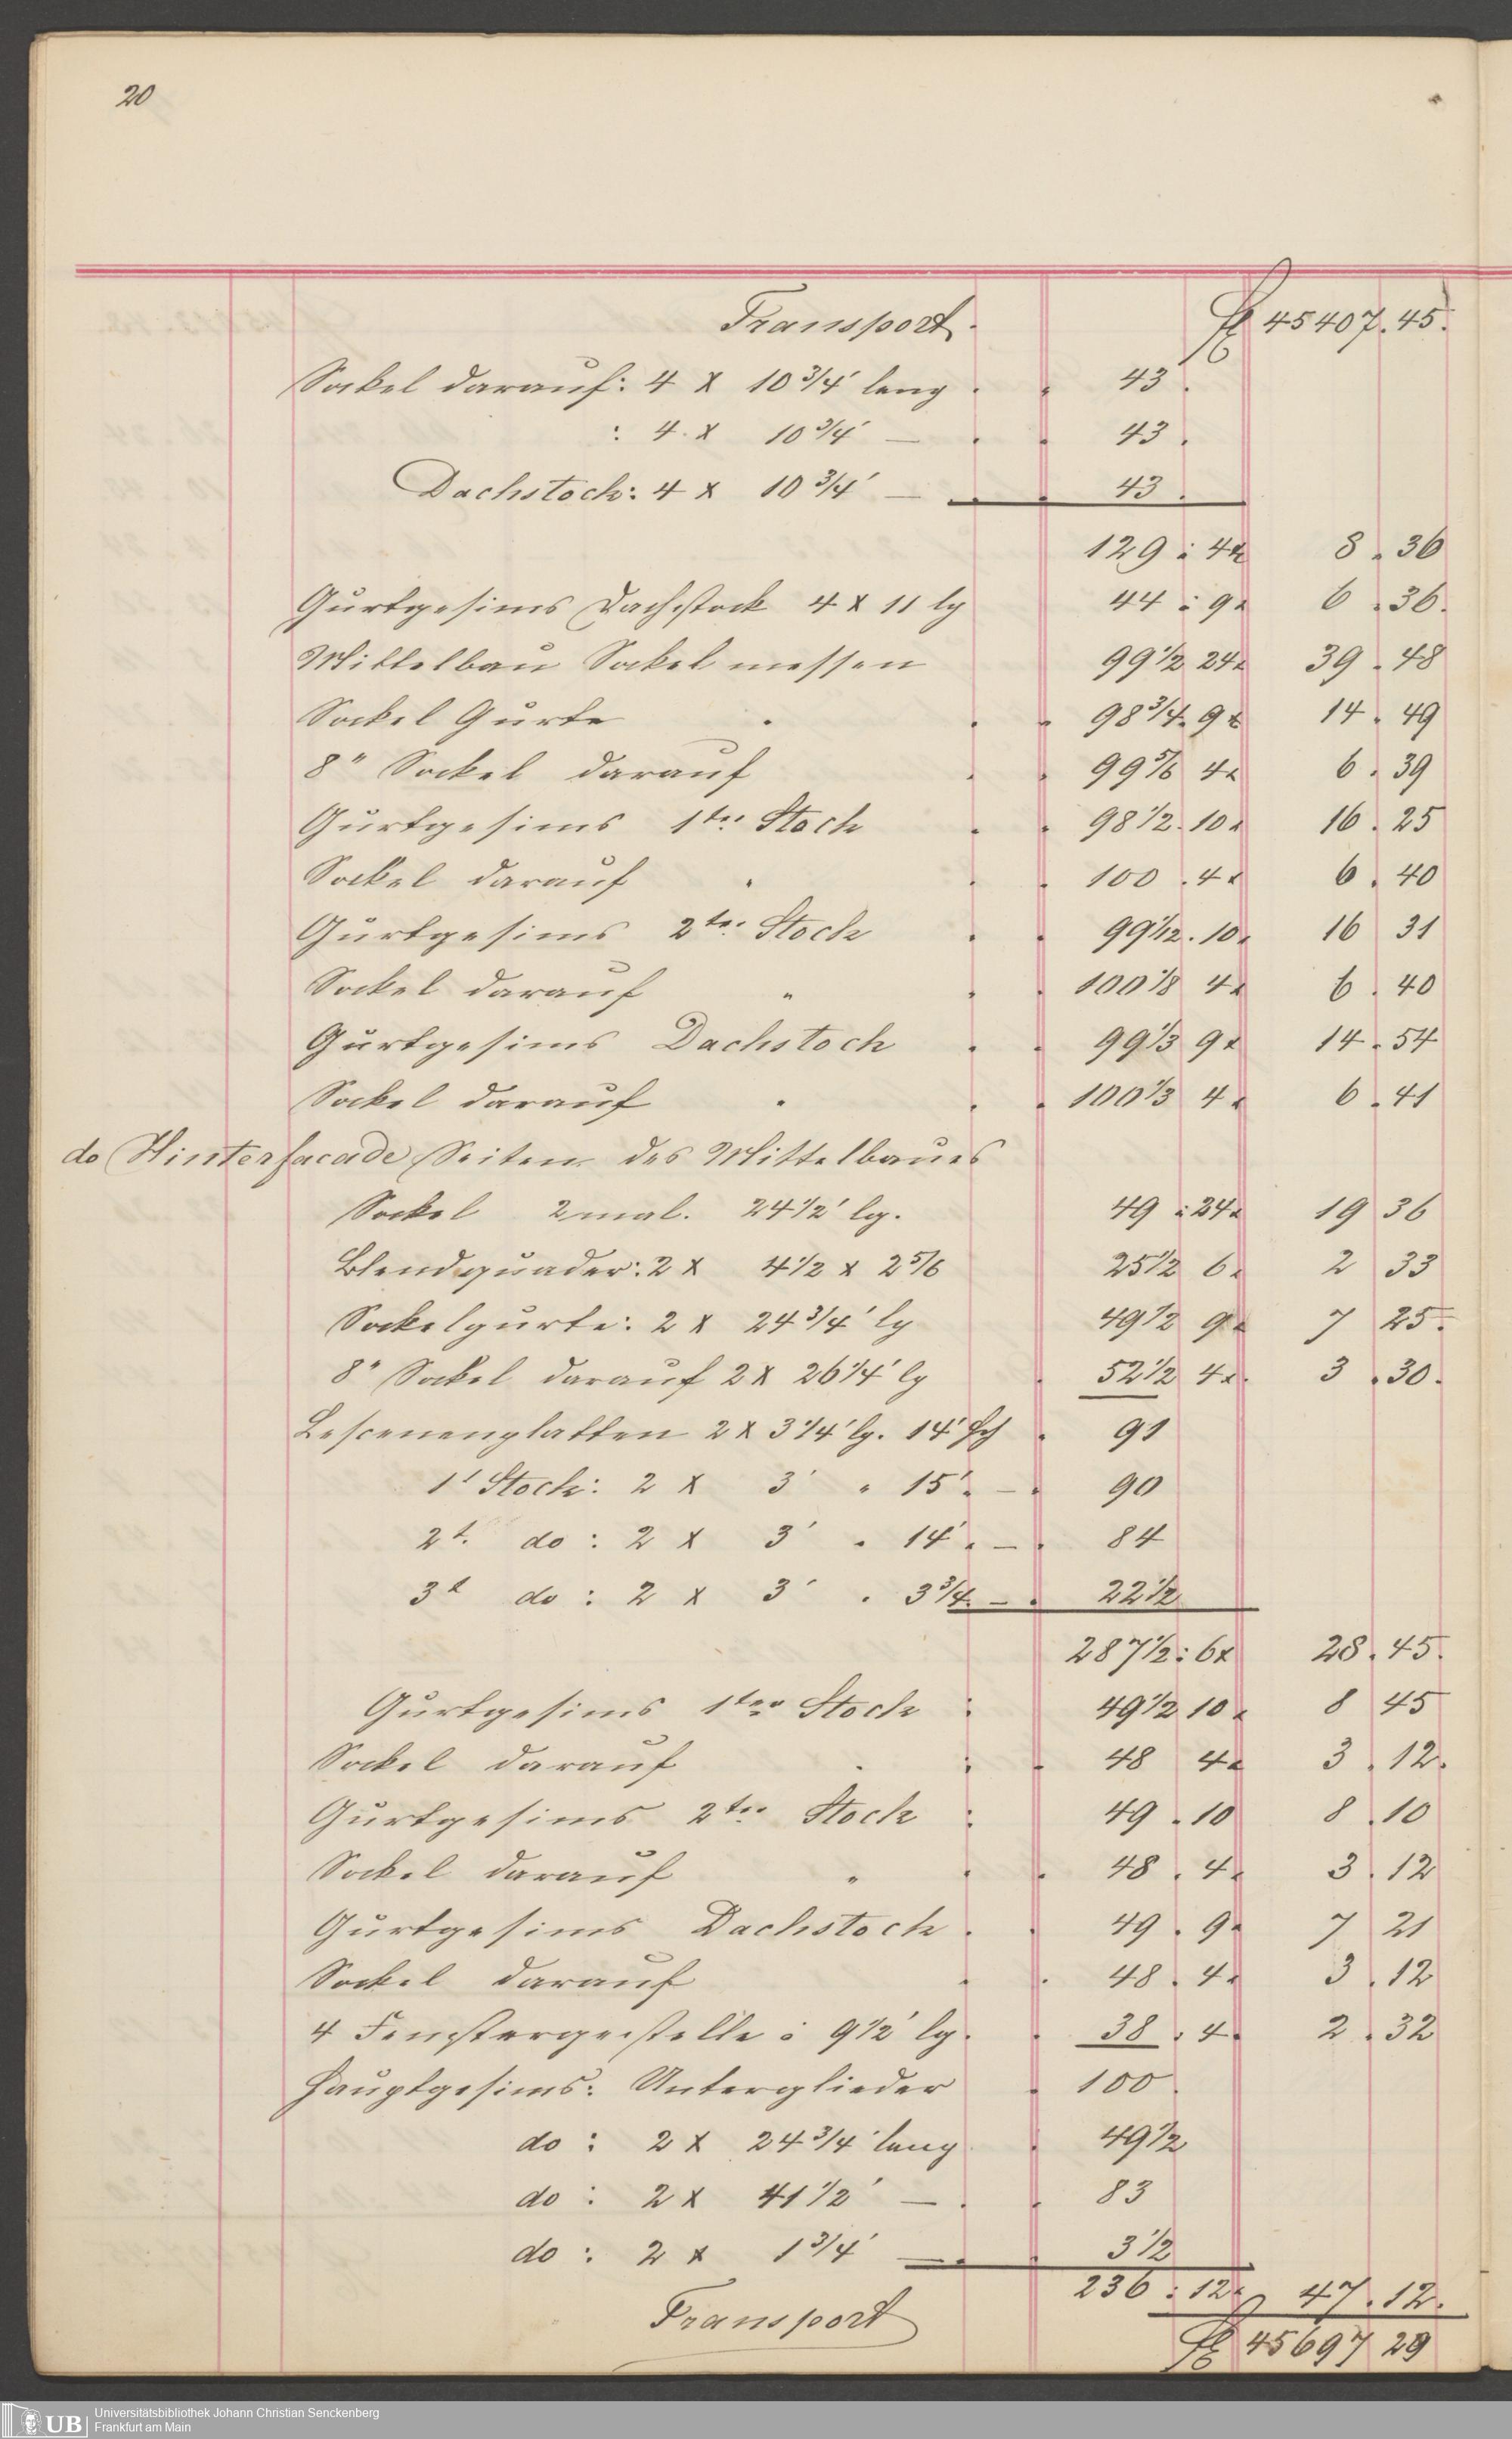 20
Transport. fl 45407. 45.
Sockel darauf: 4 x 10 3/4' lang . " 43 .
: 4 x 10 3/4' — . " 43 .
Dachstock: 4 x 10 3/4' — . " 43 .
129 : 4x 8 . 36
Gurtgesims Dachstock 4 x 11 lg 44 : 9x 6 . 36.
Mittelbau Sockel messen 99 1/2 24x 39 . 48
Sockel Gurte " . " 98 3/4 . 9x 14 . 49
8" Sockel darauf . " 99 5/6 4x 6 . 39
Gurtgesims 1ter Stock . " 98 1/2 . 10x 16 . 25
Sockel darauf " . " 100 . 4x 6 . 40
Gurtgesims 2ter Stock . " 99 1/12 . 10x 16 31
Sockel darauf " . " 100 1/8 4x 6 . 40
Gurtgesims Dachstock . " 99 1/3 9x 14 . 54
Sockel darauf " . " 100 1/3 4x 6 . 41
do Hinterfacade Seiten des Mittelbaues
Sockel 2mal. 24 1/2' lg. 49 : 24x 19 36
Blendquader: 2 x 4 1/2 x 2 5/6 25 1/2 6x 2 33
Sockelgurte: 2 x 24 3/4' lg 49 1/2 9x 7 25.
8" Sockel darauf 2 x 26 1/4' lg 52 1/2 4x. 3 . 30.
Lescenenplatten 2 x 3 1/4' lg. 14' hch " 91
1t Stock: 2 x 3' " 15' " — " 90
2t. do : 2 x 3' " 14' " — " 84
3t do : 2 x 3' " 3 3/4 " — " 22 1/2
287 1/2 : 6x 28 . 45.
Gurtgesims 1ter Stock : 49 1/2 10x 8 45
Sockel darauf " : " 48 4x 3 . 12.
Gurtgesims 2ter Stock : 49 . 10 8 . 10
Sockel darauf " . " 48 . 4x 3 . 12
Gurtgesims Dachstock . " 49 . 9x 7 21
Sockel darauf . " 48 . 4x 3 . 12
4 Fenstergestelle à 9 1/2' lg. " 38 : 4x 2 . 32
Hauptgesims: Unterglieder " 100 .
do : 2 x 24 3/4' lang " 49 1/2
do : 2 x 41 1/2' — . " 83
do : 2 x 1 3/4' — . " 3 1/2
236 : 12x 47 . 12.
Transport fl 45697 29
UB Universitätsbibliothek Johann Christian Senckenberg
Frankfurt am Main